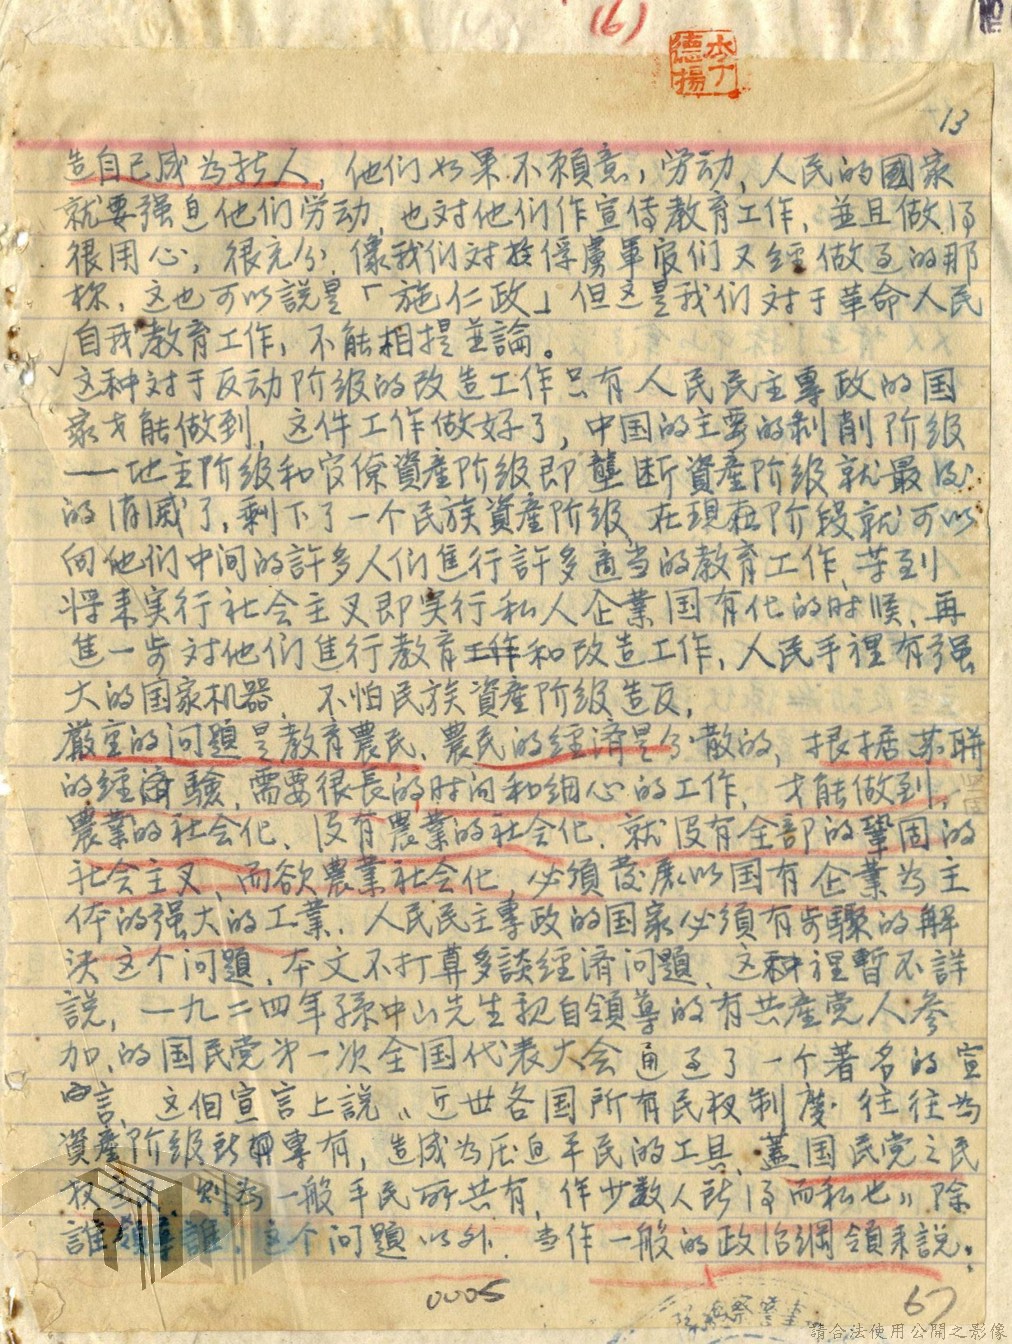 (6)
李丁
德揚
13
造自己成为新人，他们如果不願意，劳动，人民的國家
就要强迫他们劳动，也对他们作宣传教育工作，並且做得
很用心，很充分，像我们对于俘虜軍官们又經做过的那
样，这也可以説是「施仁政」但这是我们对于革命人民
自我教育工作，不能相提並論。
这种对于反动阶级的改造工作只有人民民主專政的国
家才能做到，这件工作做好了，中国的主要的剥削阶级
——地主阶级和官僚資産阶级即壟断資産阶级就最後
的消滅了，剩下了一个民族資産阶级，在現在阶段就可以
向他们中间的許多人们進行許多適当的教育工作，等到
将来实行社会主义即实行私人企業国有化的时候，再
進一步对他们進行教育工作和改造工作，人民手裡有强
大的国家机器，不怕民族資産阶级造反，
嚴重的问題是教育農民，農民的經済是分散的，根据苏聯
的經済驗，需要很長的时间和细心的工作，才能做到，
農業的社会化，没有農業的社会化，就没有全部的鞏固的
社会主义，而欲農業社会化，必須發展以国有企業为主
体的强大的工業，人民民主專政的国家必須有步驟的解
决这个问題，本文不打算多談經済问題，这种裡暫不詳
説，一九二四年孫中山先生親自領導的有共産党人参
加，的国民党第一次全国代表大会通过了一个著名的宣
言，这個宣言上説《近世各国所有民权制度往往为
資産阶级所專有，造成为压迫平民的工具，蓋国民党之民
权主义，则为一般平民所共有，作少数人所得而私也》除
誰領導誰，这个问題以外，当作一般的政治綱領来説，
0005
67
請合法使用公開之影像